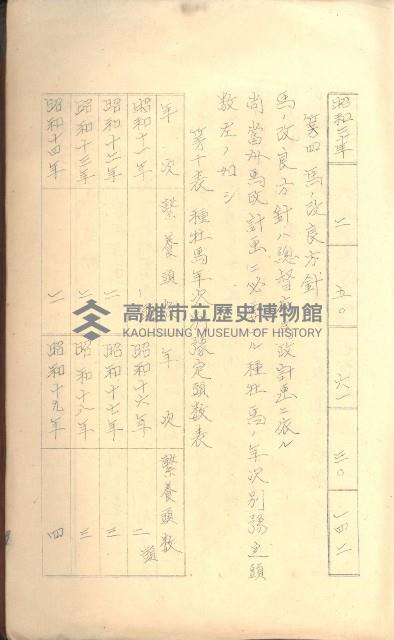 昭和二十年 二 五〇 六一 三〇 一四二
第四 馬ノ改良方針
馬ノ改良方針ハ總督府馬政計畫ニ依ル
尚當州馬政計畫ニ必要ナル種牡馬ノ年次別豫定頭
数左ノ如シ
第十表 種牡馬年次別豫定頭数表
年次 繋養頭数 年次 繋養頭数
昭和十一年 昭和十六年 二頭
昭和十二年 二 昭和十七年 三
昭和十三年 二 昭和十八年 三
昭和十四年 二 昭和十九年 四
高雄市立歷史博物館
KAOHSIUNG MUSEUM OF HISTORY